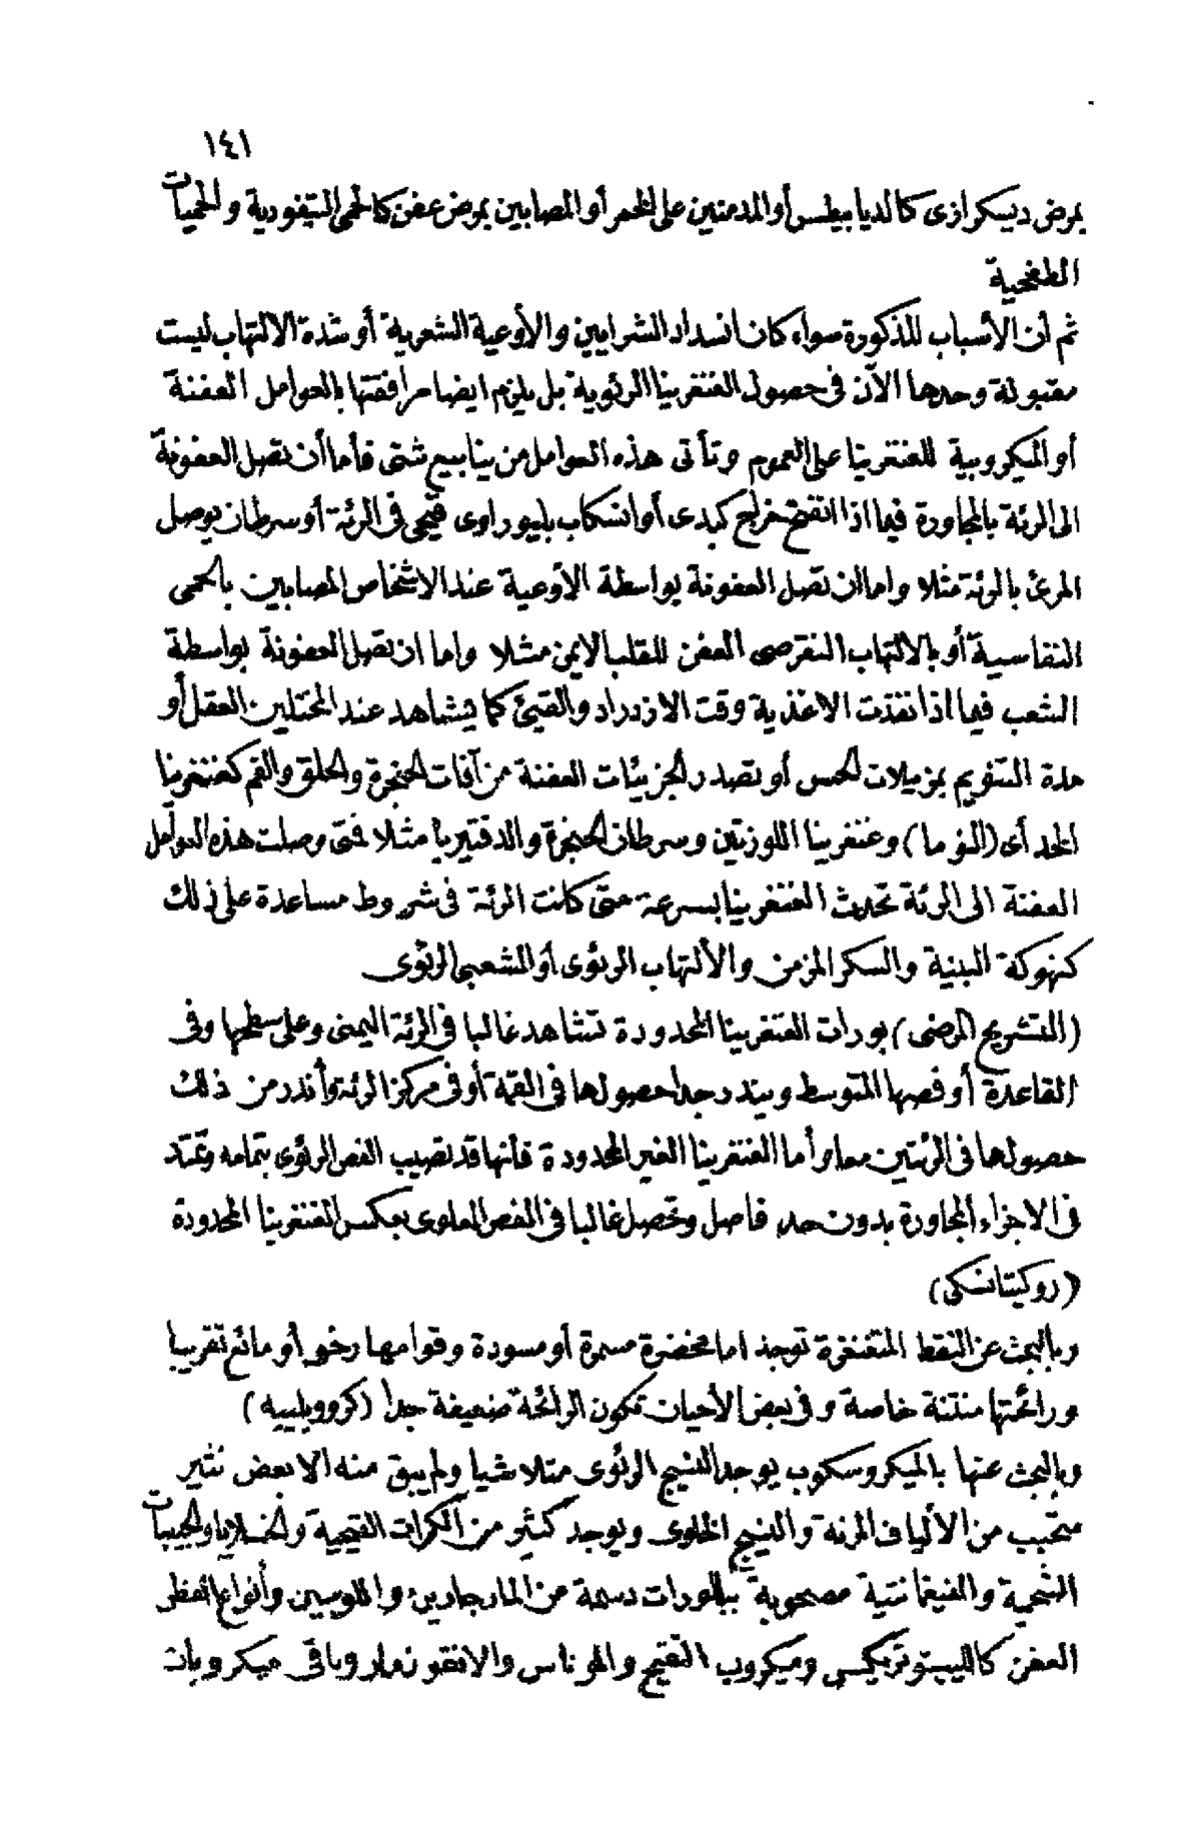 ١٤١
بمرض ديسكرازى كالديابيطس أو المدمنين على الخمر أو المصابين بمرض عفن كالحمى التيفودية والحميات
الطفحية
ثم أن الأسباب المذكورة سواء كان انسداد الشرايين والأوعية الشعرية أو شدة الالتهاب ليست
مقبولة وحدها الآن فى حصول الغنغرينا الرئوية بل يلزم ايضا مرافقتها بالعوامل العفنة
أو الميكروبية للغنغرينا على العموم وتأتى هذه العوامل من ينابيع شتى فأما أن تصل العفونة
الى الرئة بالمجاورة فيما اذا انفتح خراج كبدى أو انسكاب بليوراوى قيحى فى الرئة أو سرطان يوصل
المرئ بالرئة مثلا واما ان تصل العفونة بواسطة الأوعية عند الاشخاص المصابين بالحمى
النفاسية أو بالالتهاب التقرحى العفن للقلب الايمن مثلا واما ان تصل العفونة بواسطة
الشعب فيما اذا نفذت الاغذية وقت الازدراد والقيئ كما يشاهد عند المختلين العقل أو
مدة التنويم بمزيلات الحس أو تصدر الجزيئات العفنة من آفات الحنجرة والحلق والفم كغنغرينا
الخد أى (النوما) وغنغرينا اللوزتين وسرطان الحنجرة والدفتيريا مثلا فمتى وصلت هذه العوامل
العفنة الى الرئة تحدث الغنغرينا بسرعة متى كانت الرئة فى شروط مساعدة على ذلك
كنهوكة البنية والسكر المزمن والألتهاب الرئوى أو الشعبى الرئوى
(التشريح المرضى) بورات الغنغرينا المحدودة تشاهد غالبا فى الرئة اليمنى وعلى سطحها وفى
القاعدة أو فصها المتوسط ويندر جدا حصولها فى القمة أو فى مركز الرئة وأندر من ذلك
حصولها فى الرئتين معا وأما الغنغرينا الغير المحدودة فأنها قد تصيب الفص الرئوى بتمامه وتمتد
فى الاجزاء المجاورة بدون حد فاصل وتحصل غالبا فى الفص العلوى بعكس الغنغرينا المحدودة
(روكيتانسكى)
وبالبحث عن النقط المتغنغرة توجد اما مخضرة مسمرة أو مسودة وقوامها رخو أو مائع تقريبا
ورائحتها منتنة خاصة وفى بعض الأحيان تكون الرائحة ضعيفة جدا (كروويلييه)
وبالبحث عنها بالميكروسكوب يوجد النسيج الرئوى متلاشيا ولم يبق منه الا بعض نثير
متحبب من الألياف المرنة والنسيج الخلوى ويوجد كثير من الكرات القيحية والخلايا والحبيبات
الشحمية والفيغانتية مصحوبة ببللورات دسمة من المارجارين واللوسين وأنواع الفطر
العفن كالليبتوتريكس وميكروب التقيح والموناس والانفوزمار وباقى ميكروبات